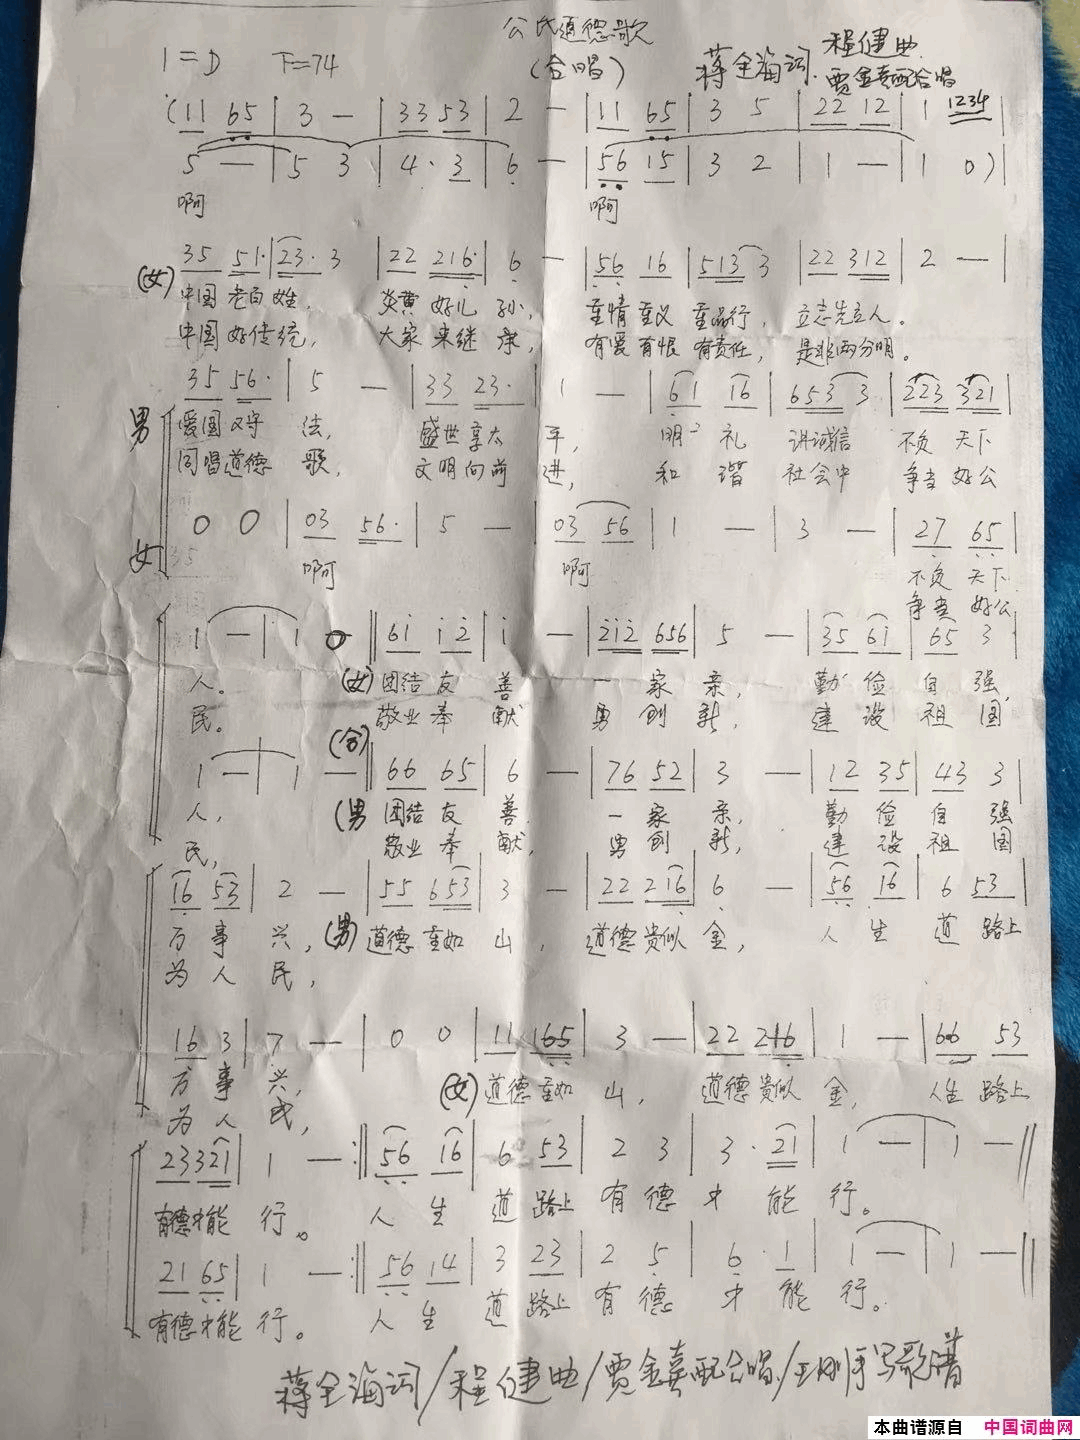 公民道德歌
(合唱)
1=D F=74
蒋全海词. 程健曲
贾金喜配合唱
(11 65 | 3 — | 33 53 | 2 — | 11 65 | 3 5 | 22 12 | 1 1234 |
5 — | 5 3 | 4· 3 | 6 — | 56 15 | 3 2 | 1 — | 1 0) |
啊 啊
35 51· | 23· 3 | 22 216· | 6 — | 56 16 | 513 3 | 22 312 | 2 — |
(女) 中国老百姓, 炎黄好儿孙, 至情至义 至品行, 立志先立人。
中国好传统, 大家来继承, 有爱有恨 有责任, 是非两分明。
35 56· | 5 — | 33 23· | 1 — | 61 16 | 653 3 | 223 321 |
男 爱国又守法, 盛世享太平, 明礼 讲诚信 不负天下
同唱道德歌, 文明向前进, 和谐社会中 争当好公
0 0 | 03 56· | 5 — | 03 56 | 1 — | 3 — | 27 65 |
女 啊 啊 不负天下
争当好公
1 — | 1 0 || 61 12 | 1 — | 212 656 | 5 — | 35 61 | 65 3 |
人。 (女) 团结友善 一家亲, 勤俭自强,
民。 敬业奉献 勇创新, 建设祖国
(合)
1 — | 1 — || 66 65 | 6 — | 76 52 | 3 — | 12 35 | 43 3 |
人, (男 团结友善. 一家亲, 勤俭自强
民, 敬业奉献, 勇创新, 建设祖国
16 53 | 2 — | 55 653 | 3 — | 22 216 | 6 — | 56 16 | 6 53 |
万事兴, (男) 道德重如山, 道德贵似金, 人生道路上
为人民,
16 3 | 7 — | 0 0 | 11 165 | 3 — | 22 216 | 1 — | 66 53
万事兴, (女) 道德重如山, 道德贵似金, 人生路上
为人民,
23321 | 1 — :|| 56 16 | 6 53 | 2 3 | 3· 21 | 1 — | 1 — ||
有德才能行。 人生道路上有德才能行。
21 65 | 1 — :|| 56 14 | 3 23 | 2 5 | 6· 1 | 1 — | 1 — ||
有德才能行。 人生道路上有德才能行。
蒋全海词/程健曲/贾金喜配合唱/王刚手写歌谱
本曲谱源自 中国词曲网